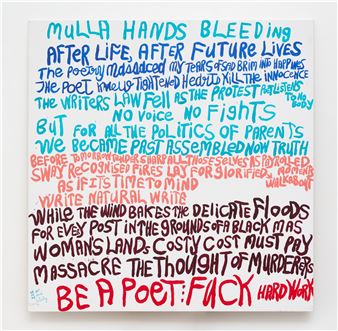 MULLA HANDS BLEEDING
AFTER LIFE, AFTER FUTURE LIVES
THE POETRY MASSACED MY TEARS OF SAD BRIM INTO HAPPINES
THE POET KNEW TIGHTENED HEDIT KILL THE INNOCENCE
THE WRITERS LAW FELL AS THE PROTEST POET LISTENS
TO NO BODY
NO VOICE NO FIGHTS
BUT FOR ALL THE POLITICS OF PARENTS
WE BECAME PAST ASSEMBLED NOW TRUTH
BEFORE TOMORROW UNDER SHARP ALL THOSE SELVES AS PAYROLLED
SWAY RECOGNISED FIRES LAY FOR GLORIFIED MOMENTS
AS IF ITS TIME TO MIND WALKABOUT
WRITE NATURAL WRITE
WHILE THE WIND BAKES THE DELICATE FLOODS
FOR EVEY POST IN THE GROUNDS OF A BLACK MAS
WOMANS LANDS COSTY COST MUST PAY
MASSACRE THE THOUGHT OF MURDERERS
BE A POET: FUCK HARD WORK